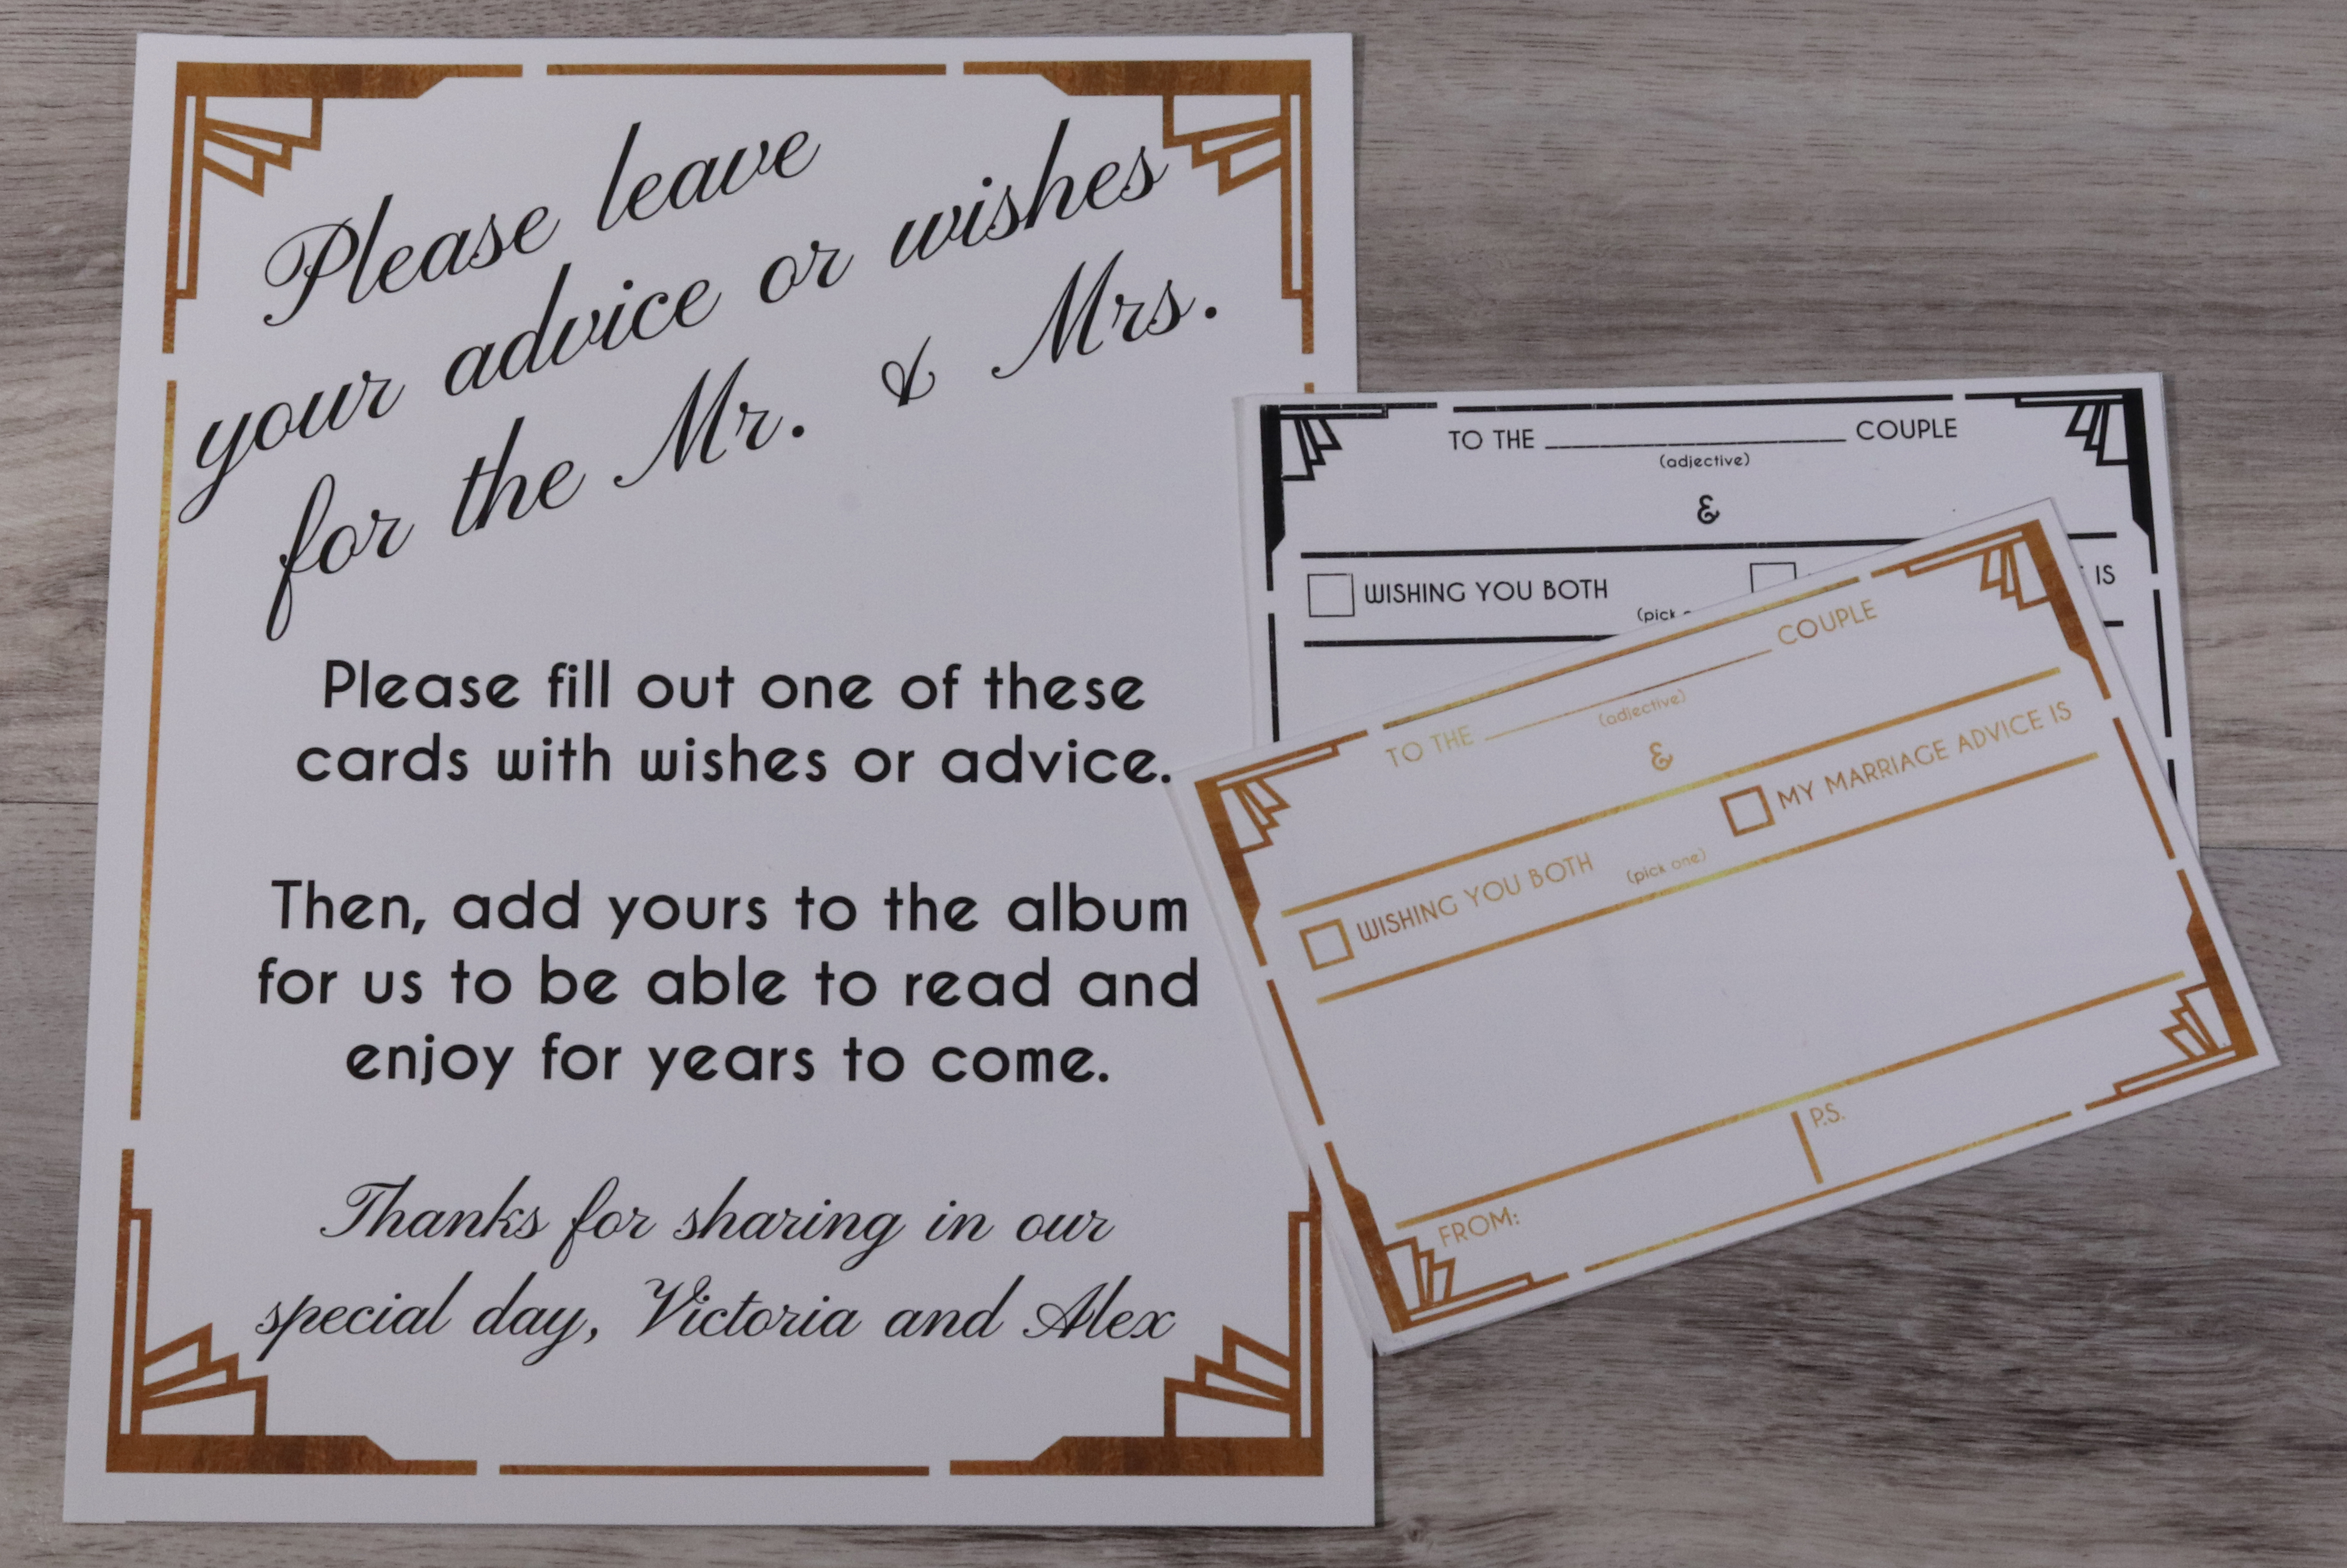 Please leave
your advice or wishes
for the Mr. & Mrs.
Please fill out one of these
cards with wishes or advice.
Then, add yours to the album
for us to be able to read and
enjoy for years to come.
Thanks for sharing in our
special day, Victoria and Alex
TO THE ____ COUPLE
(adjective)
&
WISHING YOU BOTH
(pick
IS
TO THE ____ COUPLE
(adjective)
&
WISHING YOU BOTH (pick one) MY MARRIAGE ADVICE IS
FROM:
P.S.